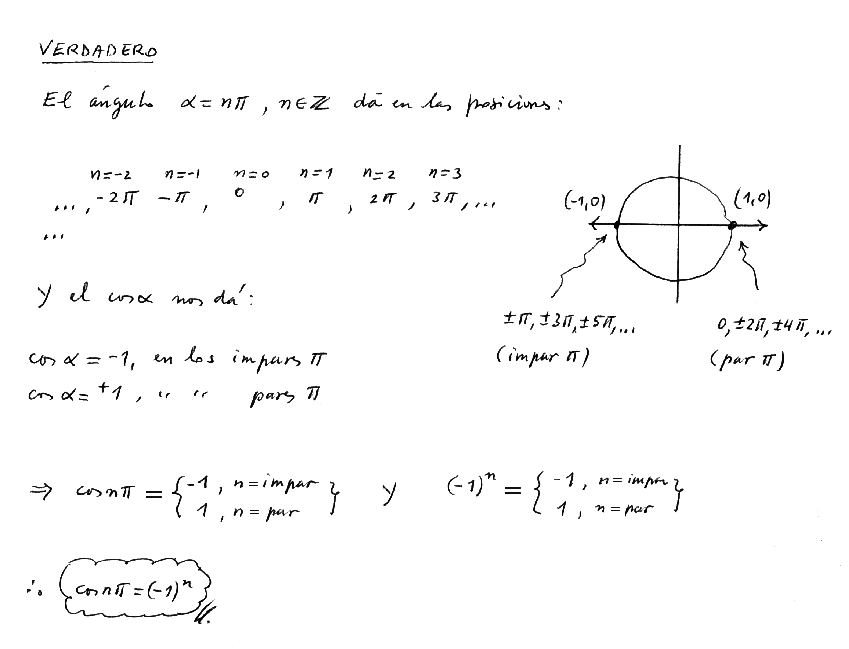 VERDADERO
El ángulo α = nπ , n∈ℤ dá en las posicions:
n=-2 n=-1 n=0 n=1 n=2 n=3
..., -2π -π , 0 , π , 2π , 3π, ...
...
(-1,0) (1,0)
±π, ±3π, ±5π, ... 0, ±2π, ±4π, ...
(impar π) (par π)
Y el cosα nos dá:
cos α = -1, en los impars π
cos α = +1 , " " pares π
⇒ cos nπ = { -1 , n = impar
1 , n = par } y (-1)ⁿ = { -1 , n = impar
1 , n = par }
∴ cos nπ = (-1)ⁿ //.